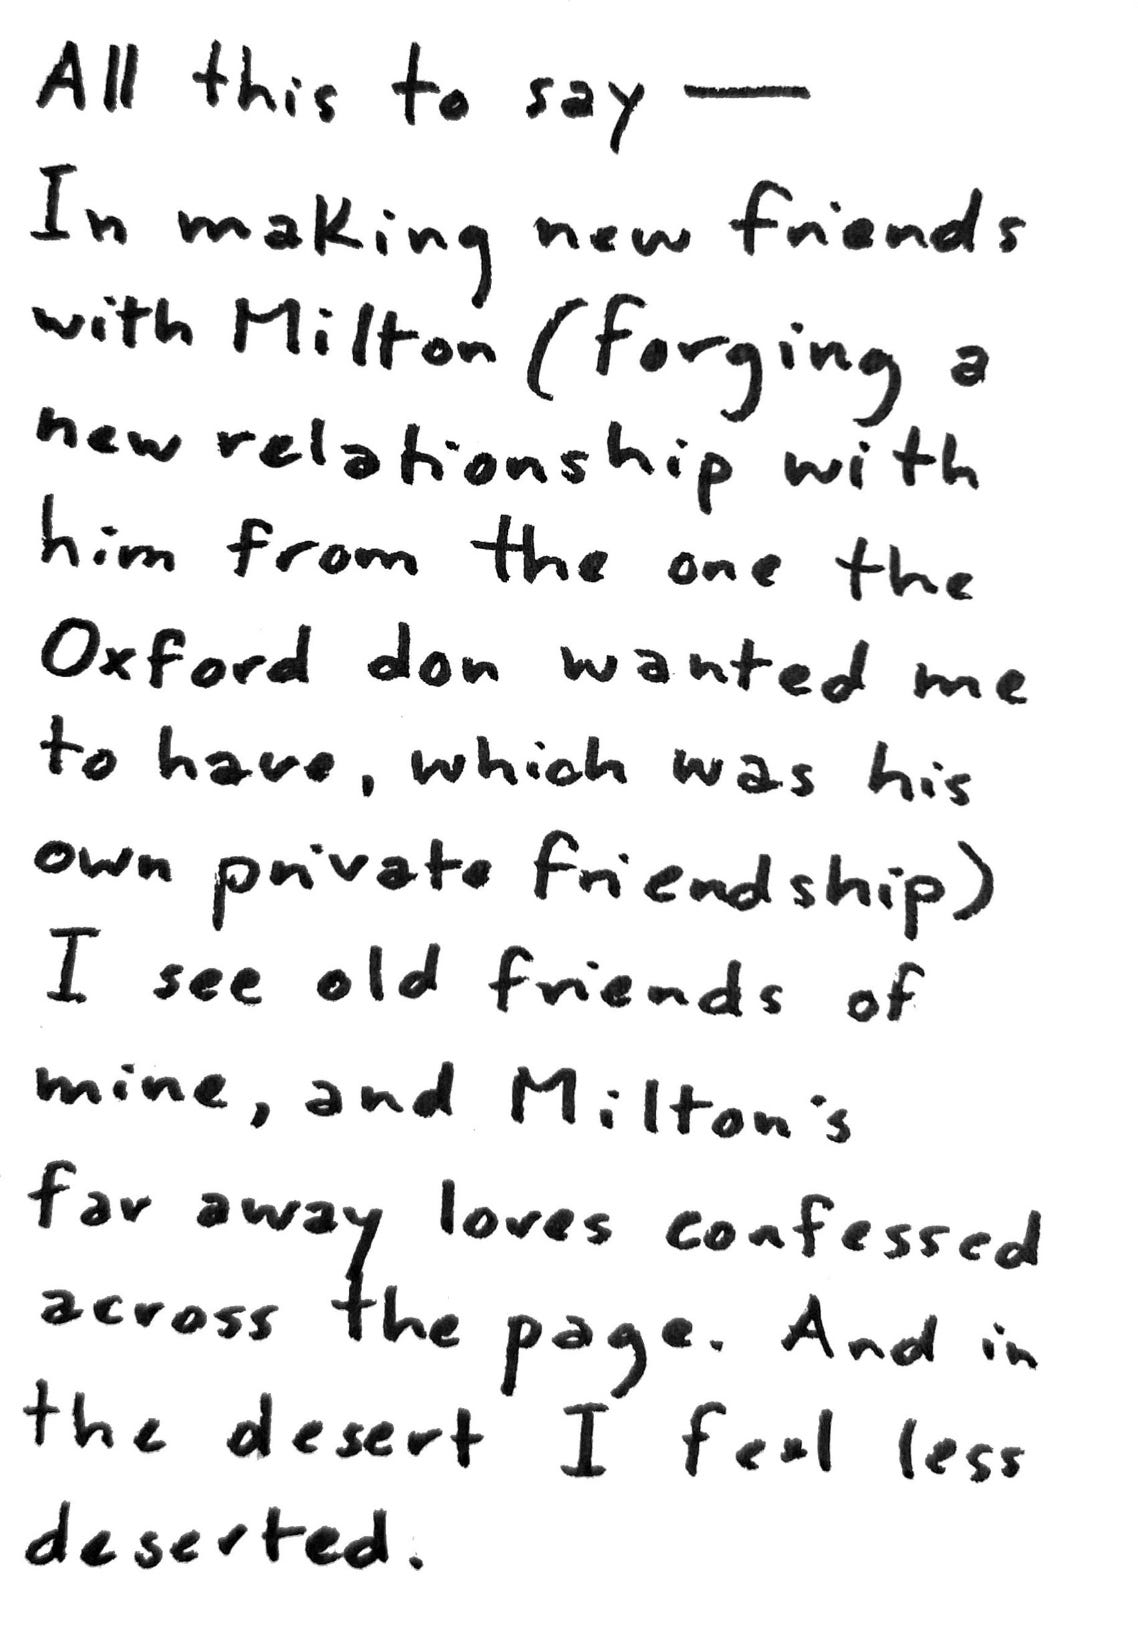 All this to say —
In making new friends
with Milton (forging a
new relationship with
him from the one the
Oxford don wanted me
to have, which was his
own private friendship)
I see old friends of
mine, and Milton's
far away loves confessed
across the page. And in
the desert I feel less
deserted.